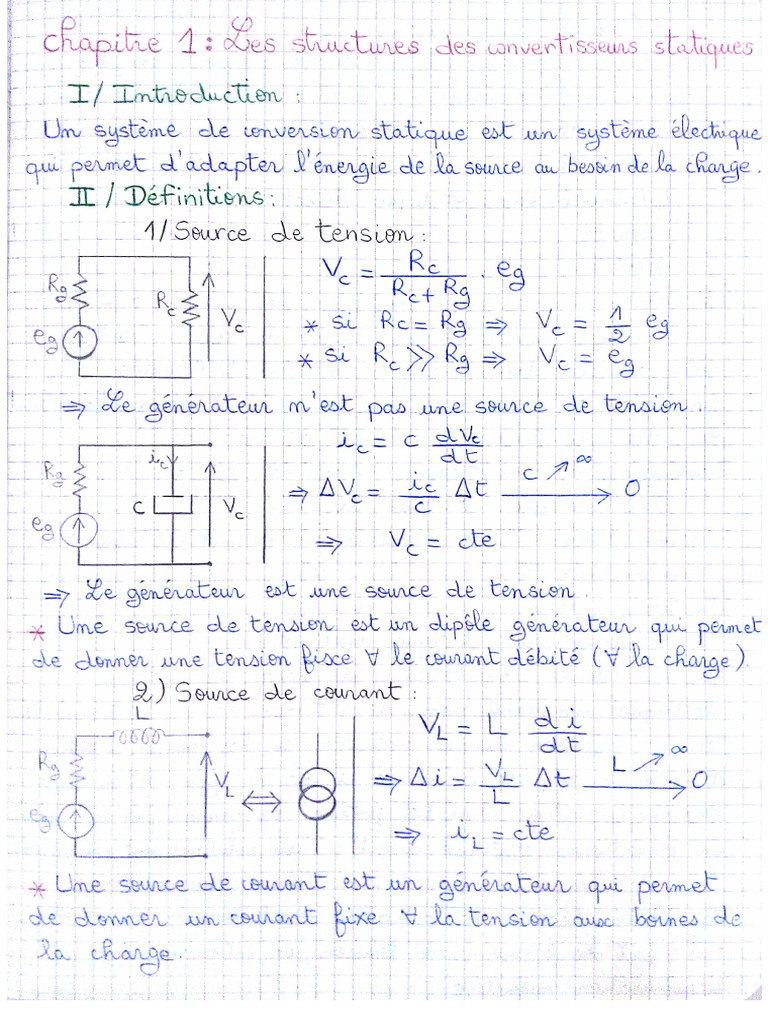 Chapitre 1 : Les structures des convertisseurs statiques
I/ Introduction :
Un système de conversion statique est un système électrique
qui permet d'adapter l'énergie de la source au besoin de la charge.
II / Définitions :
1/ Source de tension :
Rg
eg
Rc
Vc
Vc = Rc / (Rc + Rg) . eg
* si Rc = Rg ⇒ Vc = 1/2 eg
* si Rc ≫ Rg ⇒ Vc = eg
⇒ Le générateur n'est pas une source de tension.
Rg
eg
ic
C
Vc
ic = c dVc/dt
⇒ ΔVc = ic/c Δt ⟶ 0 c ↗ ∞
⇒ Vc = cte
⇒ Le générateur est une source de tension.
* Une source de tension est un dipôle générateur qui permet
de donner une tension fixe ∀ le courant débité (∀ la charge)
2) Source de courant :
L
Rg
eg
VL
⟺
VL = L di/dt
⇒ Δi = VL/L Δt ⟶ 0 L ↗ ∞
⇒ iL = cte
* Une source de courant est un générateur qui permet
de donner un courant fixe ∀ la tension aux bornes de
la charge.